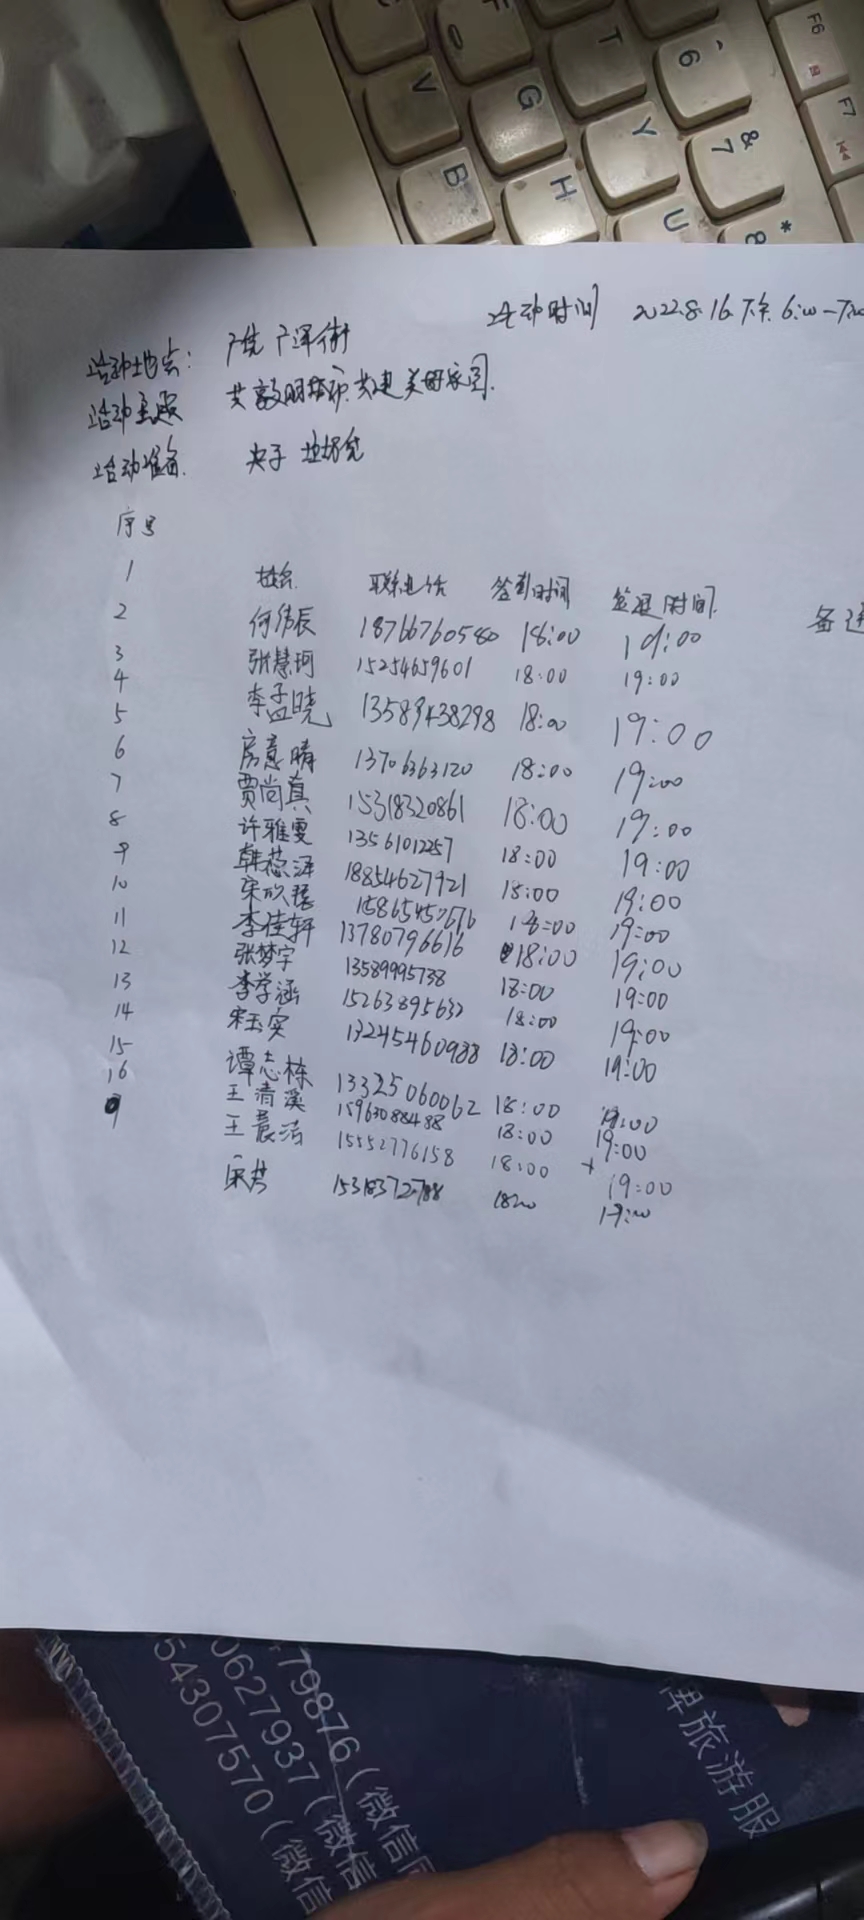 F6
F7
6
T
& 7
* 8
G
Y
V
H
U
B
活动时间 2022.8.16.下午.6:00-7:00
活动地点: 广饶
活动主题 共建美好家园.
活动准备. 夹子 垃圾袋
序号
姓名. 联系电话 签到时间 签退时间.
1 何伟辰 18766760580 18:00 19:00
2 张慧珂 15254659601 18:00 19:00
3 李孟晓 13589438298 18:00 19:00
4 房意晴 13706363120 18:00 19:00
5 贾尚真 15318320861 18:00 19:00
6 许雅雯 13561012257 18:00 19:00
7 韩蕊泽 18854627921 18:00 19:00
8 宋 18:00 19:00
9 李佳轩 13780796616 18:00 19:00
10 张梦宇 13589995738 18:00 19:00
11 李学涵 15263895632 18:00 19:00
12 宋玉实 13245460988 18:00 19:00
13 谭志栋 13325060062 18:00 19:00
14 王清溪 15963088488 18:00 19:00
15 王晨洁 15552776158 18:00 19:00
16 宋芳 15318372788 1800 19:00
79876(微信同
0627937(微信
54307570(微信
牌旅游服